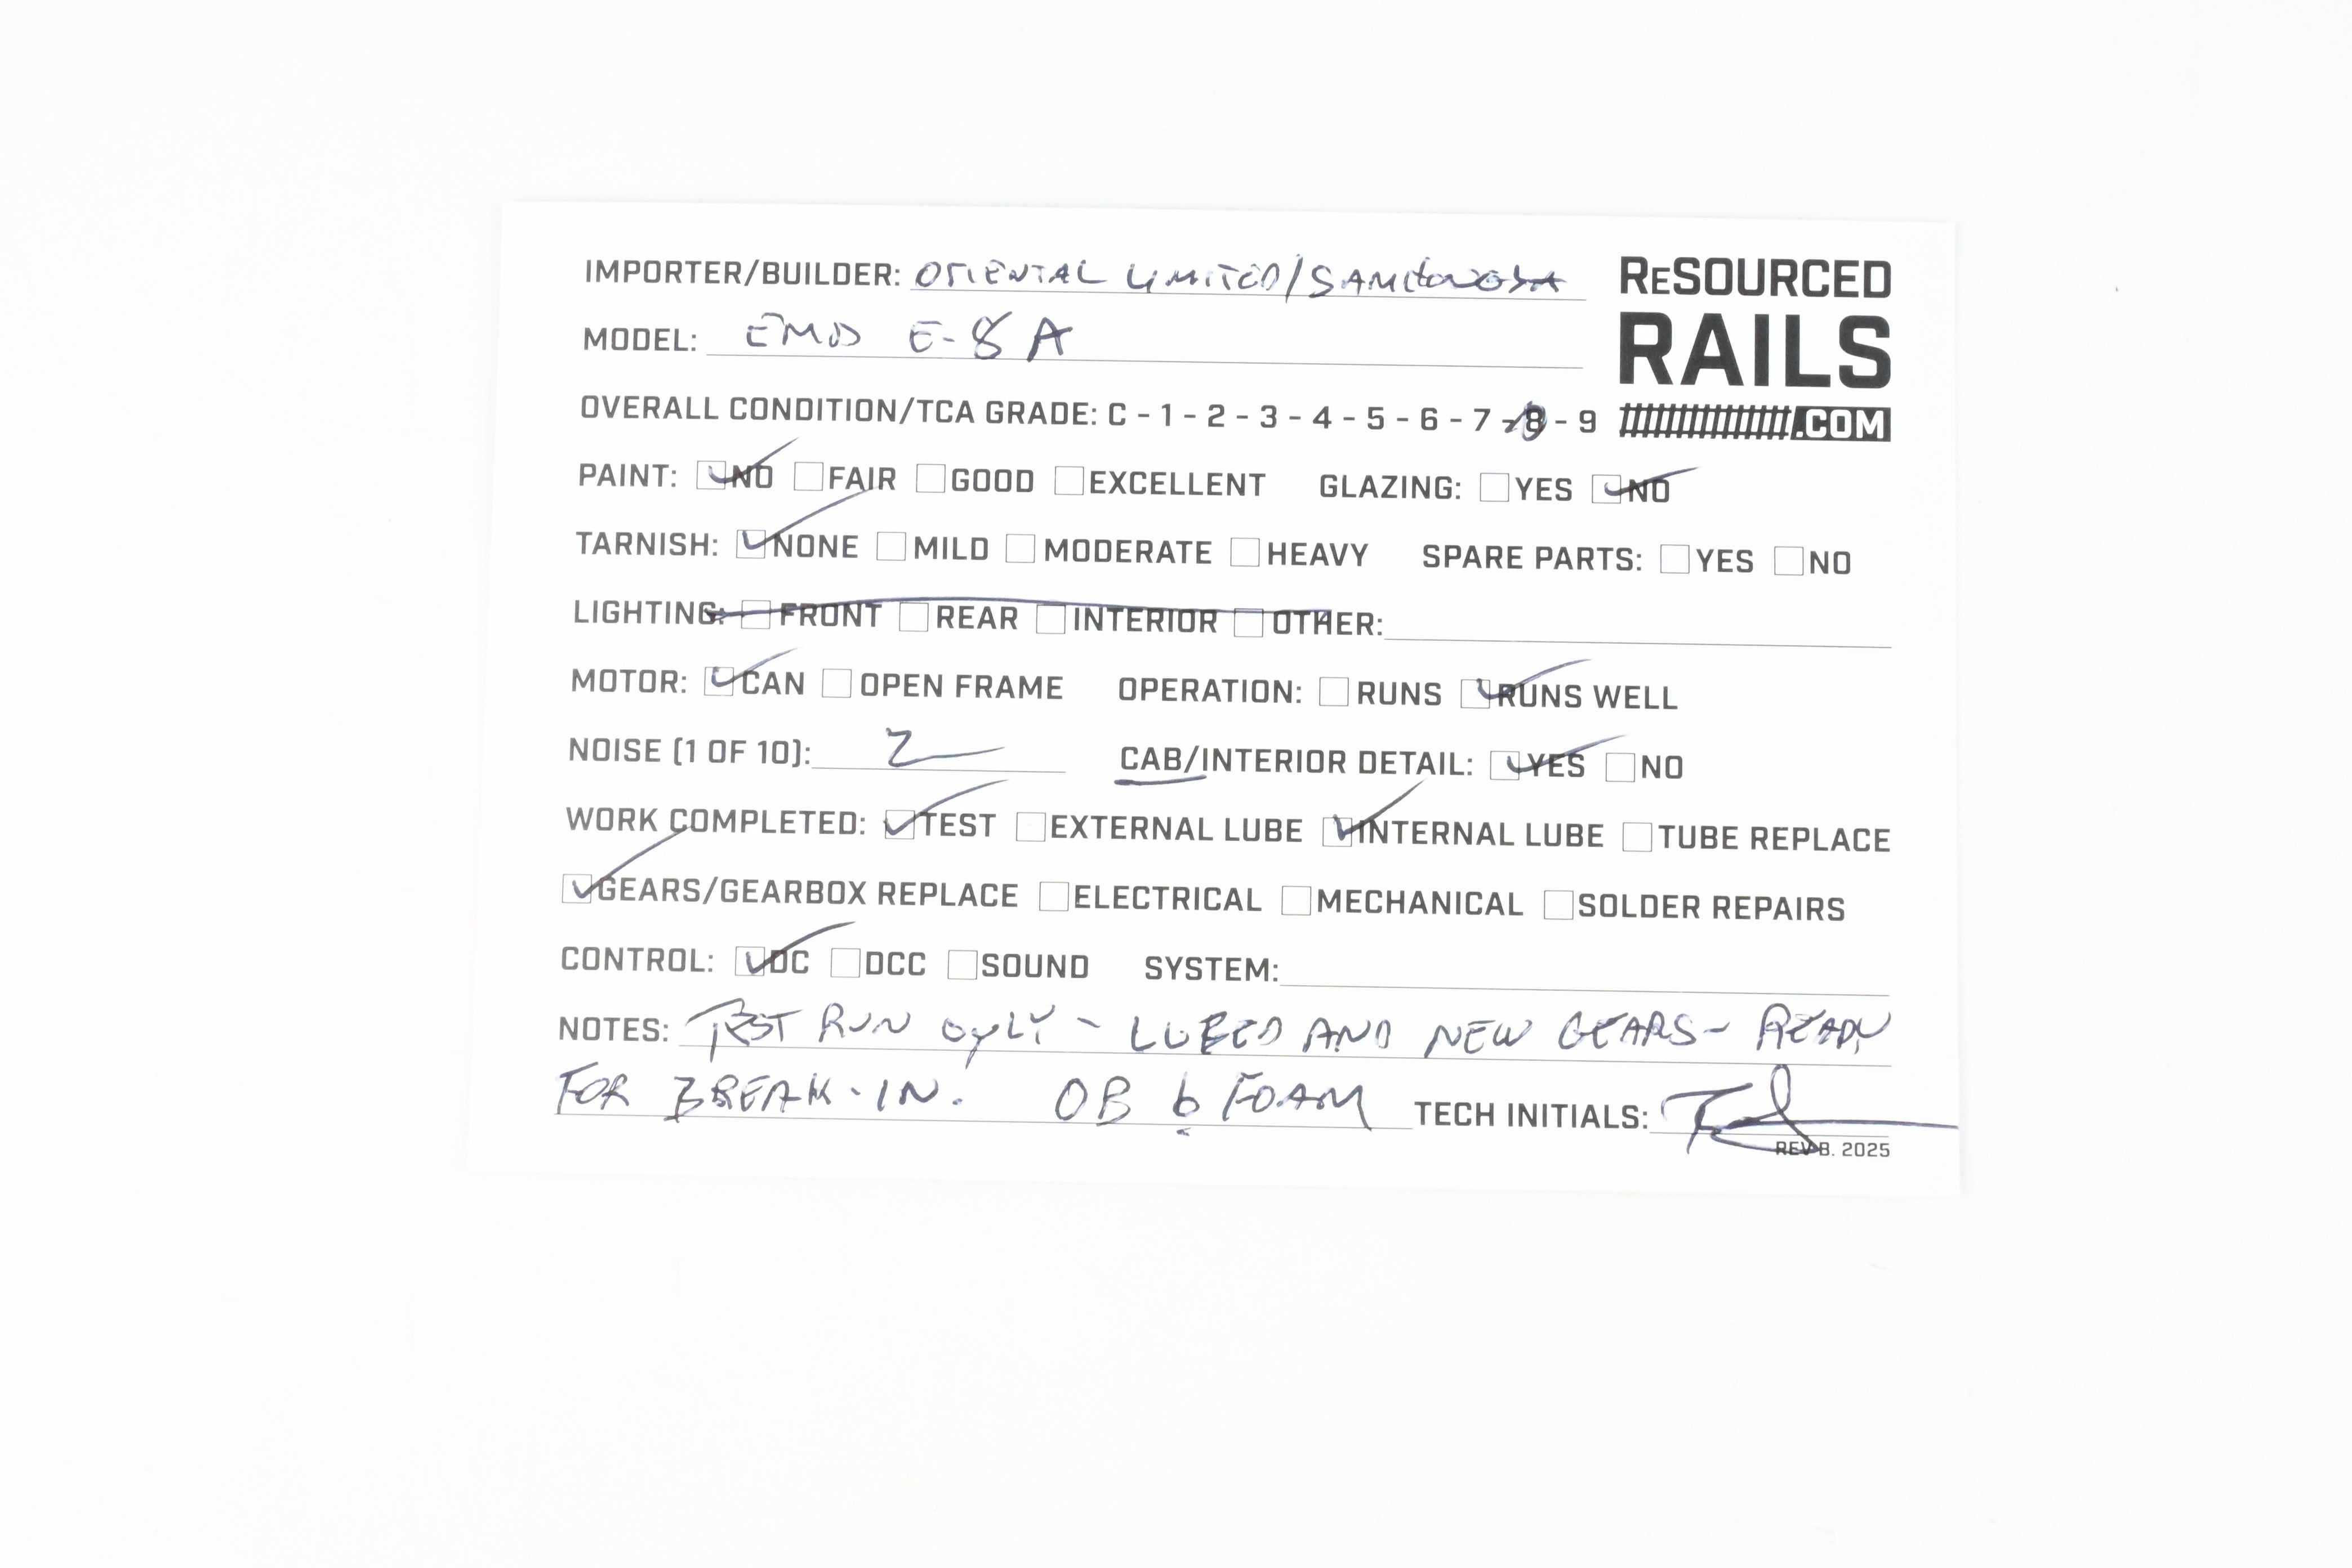 IMPORTER/BUILDER: ORIENTAL LIMITED/SAMHONGSA
ReSOURCED
RAILS
.COM
MODEL: EMD E-8 A
OVERALL CONDITION/TCA GRADE: C - 1 - 2 - 3 - 4 - 5 - 6 - 7 - 8 - 9
PAINT: NO FAIR GOOD EXCELLENT GLAZING: YES NO
TARNISH: NONE MILD MODERATE HEAVY SPARE PARTS: YES NO
LIGHTING: FRONT REAR INTERIOR OTHER:
MOTOR: CAN OPEN FRAME OPERATION: RUNS RUNS WELL
NOISE (1 OF 10): 2 CAB/INTERIOR DETAIL: YES NO
WORK COMPLETED: TEST EXTERNAL LUBE INTERNAL LUBE TUBE REPLACE
GEARS/GEARBOX REPLACE ELECTRICAL MECHANICAL SOLDER REPAIRS
CONTROL: DC DCC SOUND SYSTEM:
NOTES: TEST RUN ONLY - LUBED AND NEW GEARS - READY
FOR BREAK-IN. OB b FOAM TECH INITIALS:
REV B. 2025